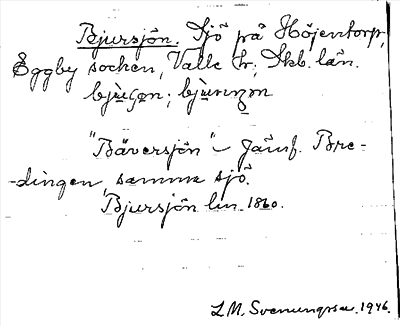 Bjursjön. Sjö på Höjentorp,
Eggby socken, Valle hr; Skb. län.
"Bäversjön" – Jämf. Bre-
-dingen, samma sjö.
Bjursjön lm. 1860.
L.M. Svenungsson. 1946.